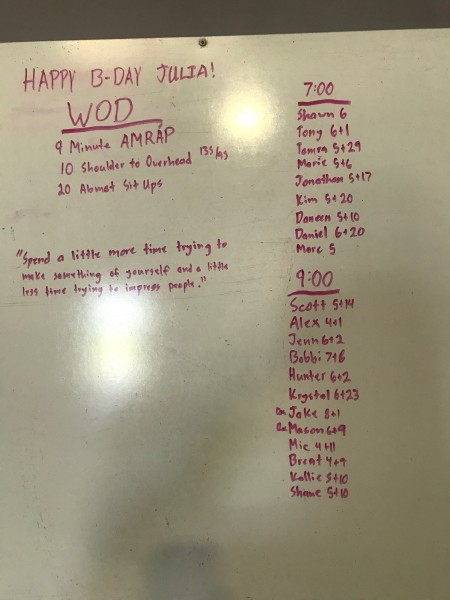 HAPPY B-DAY JULIA!
WOD
9 Minute AMRAP
10 Shoulder to Overhead 135/95
20 Abmat Sit Ups
"Spend a little more time trying to
make something of yourself and a little
less time trying to impress people."
7:00
Shawn 6
Tony 6+1
Tamra 5+29
Marie 5+6
Jonathan 5+17
Kim 5+20
Daneen 5+10
Daniel 6+20
Marc 5
9:00
Scott 5+14
Alex 4+1
Jenn 6+2
Bobbi 7+6
Hunter 6+2
Krystal 6+23
Jake 8+1
Rx Mason 6+9
Mic 4+11
Brent 4+9
Kallie 5+10
Shane 5+10